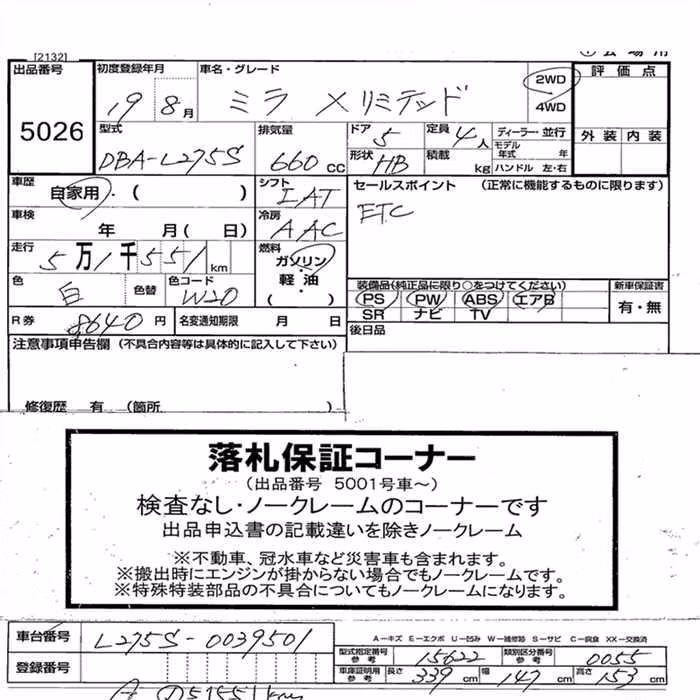 [2132]
出品番号 5026
初度登録年月 19 8月
車名・グレード ミラ Xリミテッド
2WD 4WD
評価点
外装 内装
型式 DBA-L275S
排気量 660 cc
ドア 5 定員 4人
形状 HB 積載 kg
ディーラー・並行
モデル年式 年
ハンドル 左・右
車歴 自家用・( )
シフト IAT
セールスポイント (正常に機能するものに限ります)
ETC
車検 年 月(日)
冷房 AAC
走行 5万1千551km
燃料 ガソリン・軽油( )
色 白 色替 色コード W20
装備品(純正品に限り○をつけてください)
PS PW ABS エアB
SR ナビ TV
新車保証書 有・無
R券 8640 円 名変通知期限 月 日
後日品
注意事項申告欄 (不具合内容等は具体的に記入して下さい)
修復歴 有 (箇所 )
落札保証コーナー
(出品番号 5001号車〜)
検査なし・ノークレームのコーナーです
出品申込書の記載違いを除きノークレーム
※不動車、冠水車など災害車も含まれます。
※搬出時にエンジンが掛からない場合でもノークレームです。
※特殊特装部品の不具合についてもノークレームになります。
車台番号 L275S-0039501
A−キズ E−エクボ U−凹み W−補修跡 S−サビ C−腐食 XX−交換済
型式指定番号参考 15622 類別区分番号参考 0055
登録番号
車庫証明用参考 長さ 339 cm 幅 147 cm 高さ 153 cm